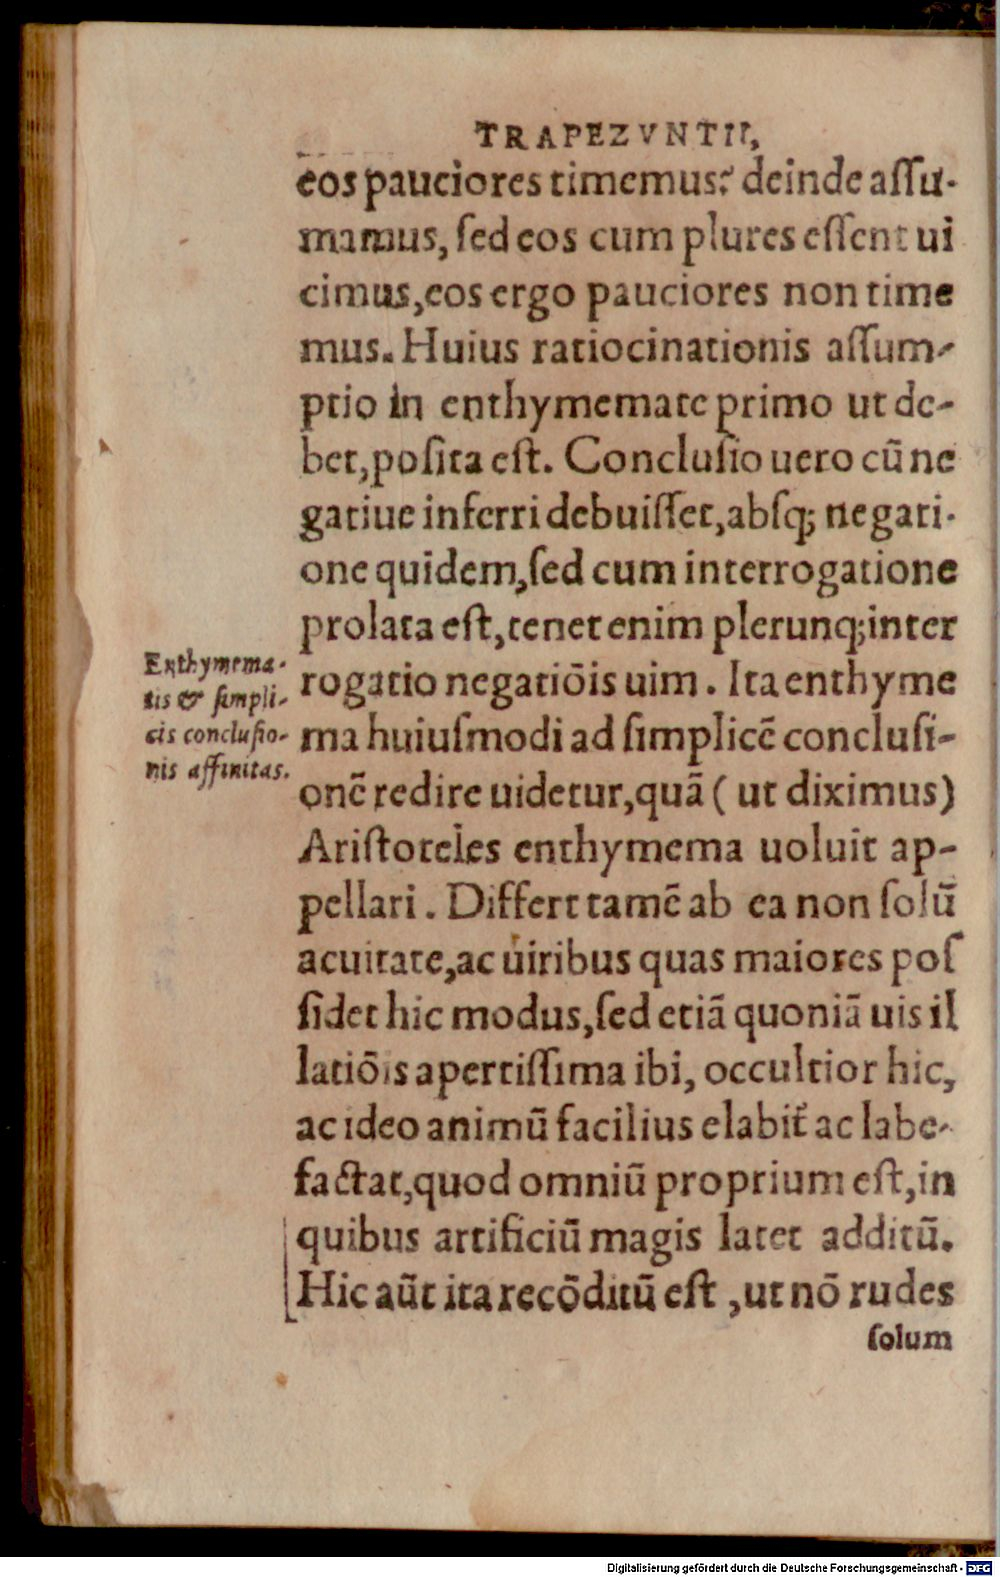 TRAPEZVNTII,
eos pauciores timemus? deinde assu-
mamus, sed eos cum plures essent ui
cimus, eos ergo pauciores non time
mus. Huius ratiocinationis assum-
ptio in enthymemate primo ut de-
bet, posita est. Conclusio uero cũ ne
gatiue inferri debuisset, absq; negati-
one quidem, sed cum interrogatione
prolata est, tenet enim plerunq; inter
rogatio negatiõis uim. Ita enthyme
ma huiusmodi ad simplicẽ conclusi-
onẽ redire uidetur, quã (ut diximus)
Aristoteles enthymema uoluit ap-
pellari. Differt tamẽ ab ea non solũ
acuitate, ac uiribus quas maiores pos
sidet hic modus, sed etiã quoniã uis il
latiõis apertissima ibi, occultior hic,
ac ideo animũ facilius elabit᷑ ac labe-
factat, quod omniũ proprium est, in
quibus artificiũ magis latet additũ.
Hic aũt ita recõditũ est, ut nõ rudes
solum
Enthymema-
tis & simpli-
cis conclusio-
nis affinitas.
Digitalisierung gefördert durch die Deutsche Forschungsgemeinschaft - DFG